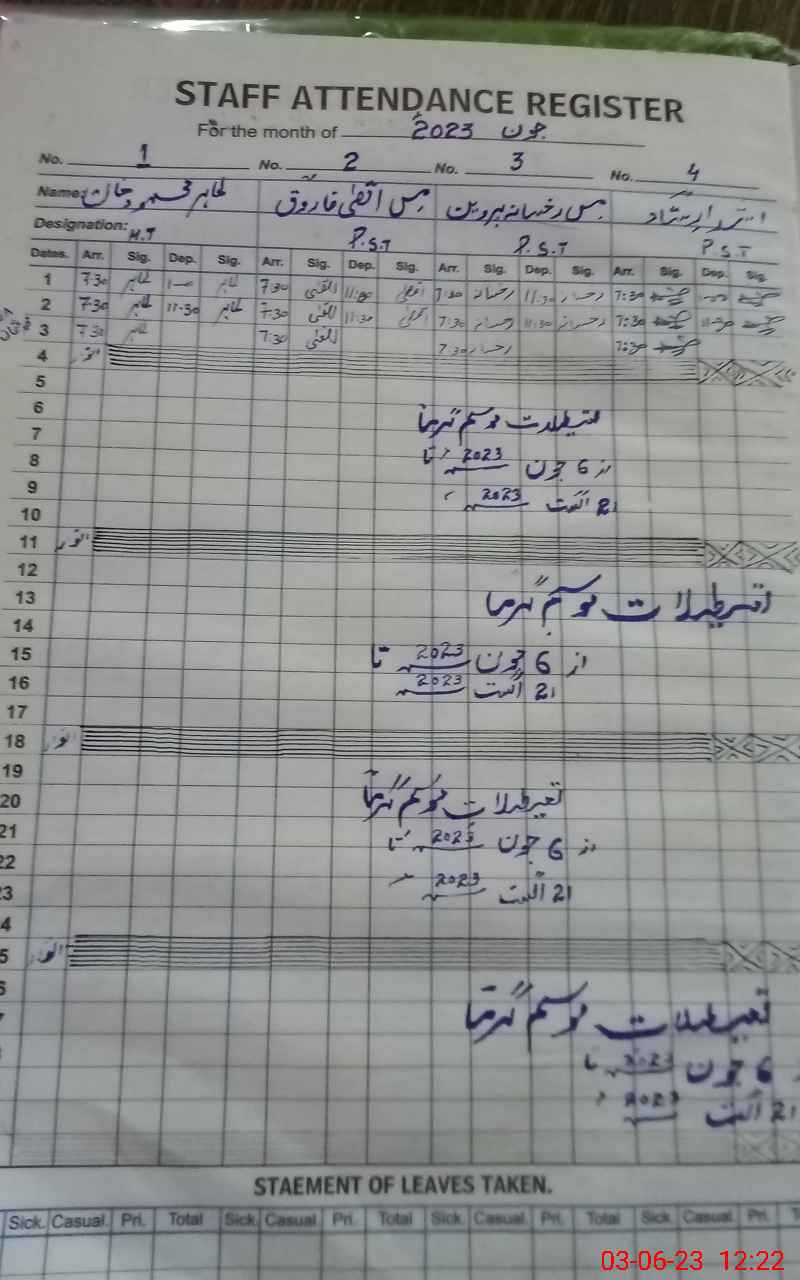 STAFF ATTENDANCE REGISTER
For the month of جون 2023
No. 1 No. 2 No. 3 No. 4
Name: طاہر محمود خان مس اقصیٰ فاروق مس رخسانہ پروین
Designation: H.T P.S.T P.S.T P.S.T
Dates. Arr. Sig. Dep. Sig. Arr. Sig. Dep. Sig. Arr. Sig. Dep. Sig. Arr. Sig. Dep. Sig.
1 7:30 طاہر 1-00 طاہر 7:30 اقصیٰ 11:30 اقصیٰ 7:30 رخسانہ 11:30 رخسانہ 7:30
2 7:30 طاہر 11-30 طاہر 7:30 اقصیٰ 11:30 اقصیٰ 7:30 رخسانہ 11:30 رخسانہ 7:30 11-30
3 7:30 طاہر 7:30 اقصیٰ 7:30 رخسانہ 7:30
4 اتوار
5
6 تعطیلات موسم گرما
7
8 از 6 جون 2023 تا
9 21 اگست 2023
10
11 اتوار
12
13 تعطیلات موسم گرما
14
15 از 6 جون 2023 تا
16 21 اگست 2023
17
18 اتوار
19
20 تعطیلات موسم گرما
21 از 6 جون 2023 تا
22
23 21 اگست 2023
4
5 اتوار
6
7 تعطیلات موسم گرما
6 جون 2023 تا
21 اگست 2023
STAEMENT OF LEAVES TAKEN.
Sick. Casual. Pri. Total Sick. Casual. Pri. Total Sick. Casual. Pri. Total Sick. Casual. Pri.
03-06-23 12:22